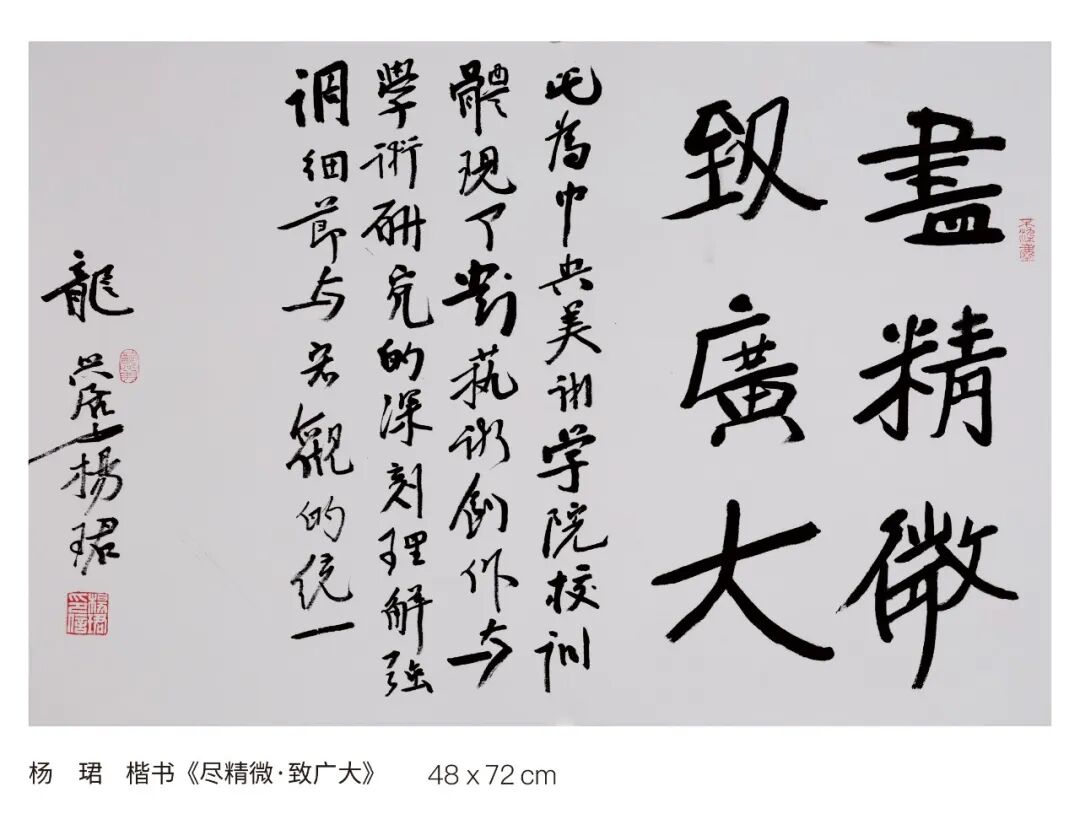 盡精微
致廣大
此為中央美術学院校訓
體現了對藝術創作与
學術研究的深刻理解强
調细節与宏觀的统一
龍興居士楊珺
楊珺
杨 珺 楷书《尽精微·致广大》 48 x 72 cm